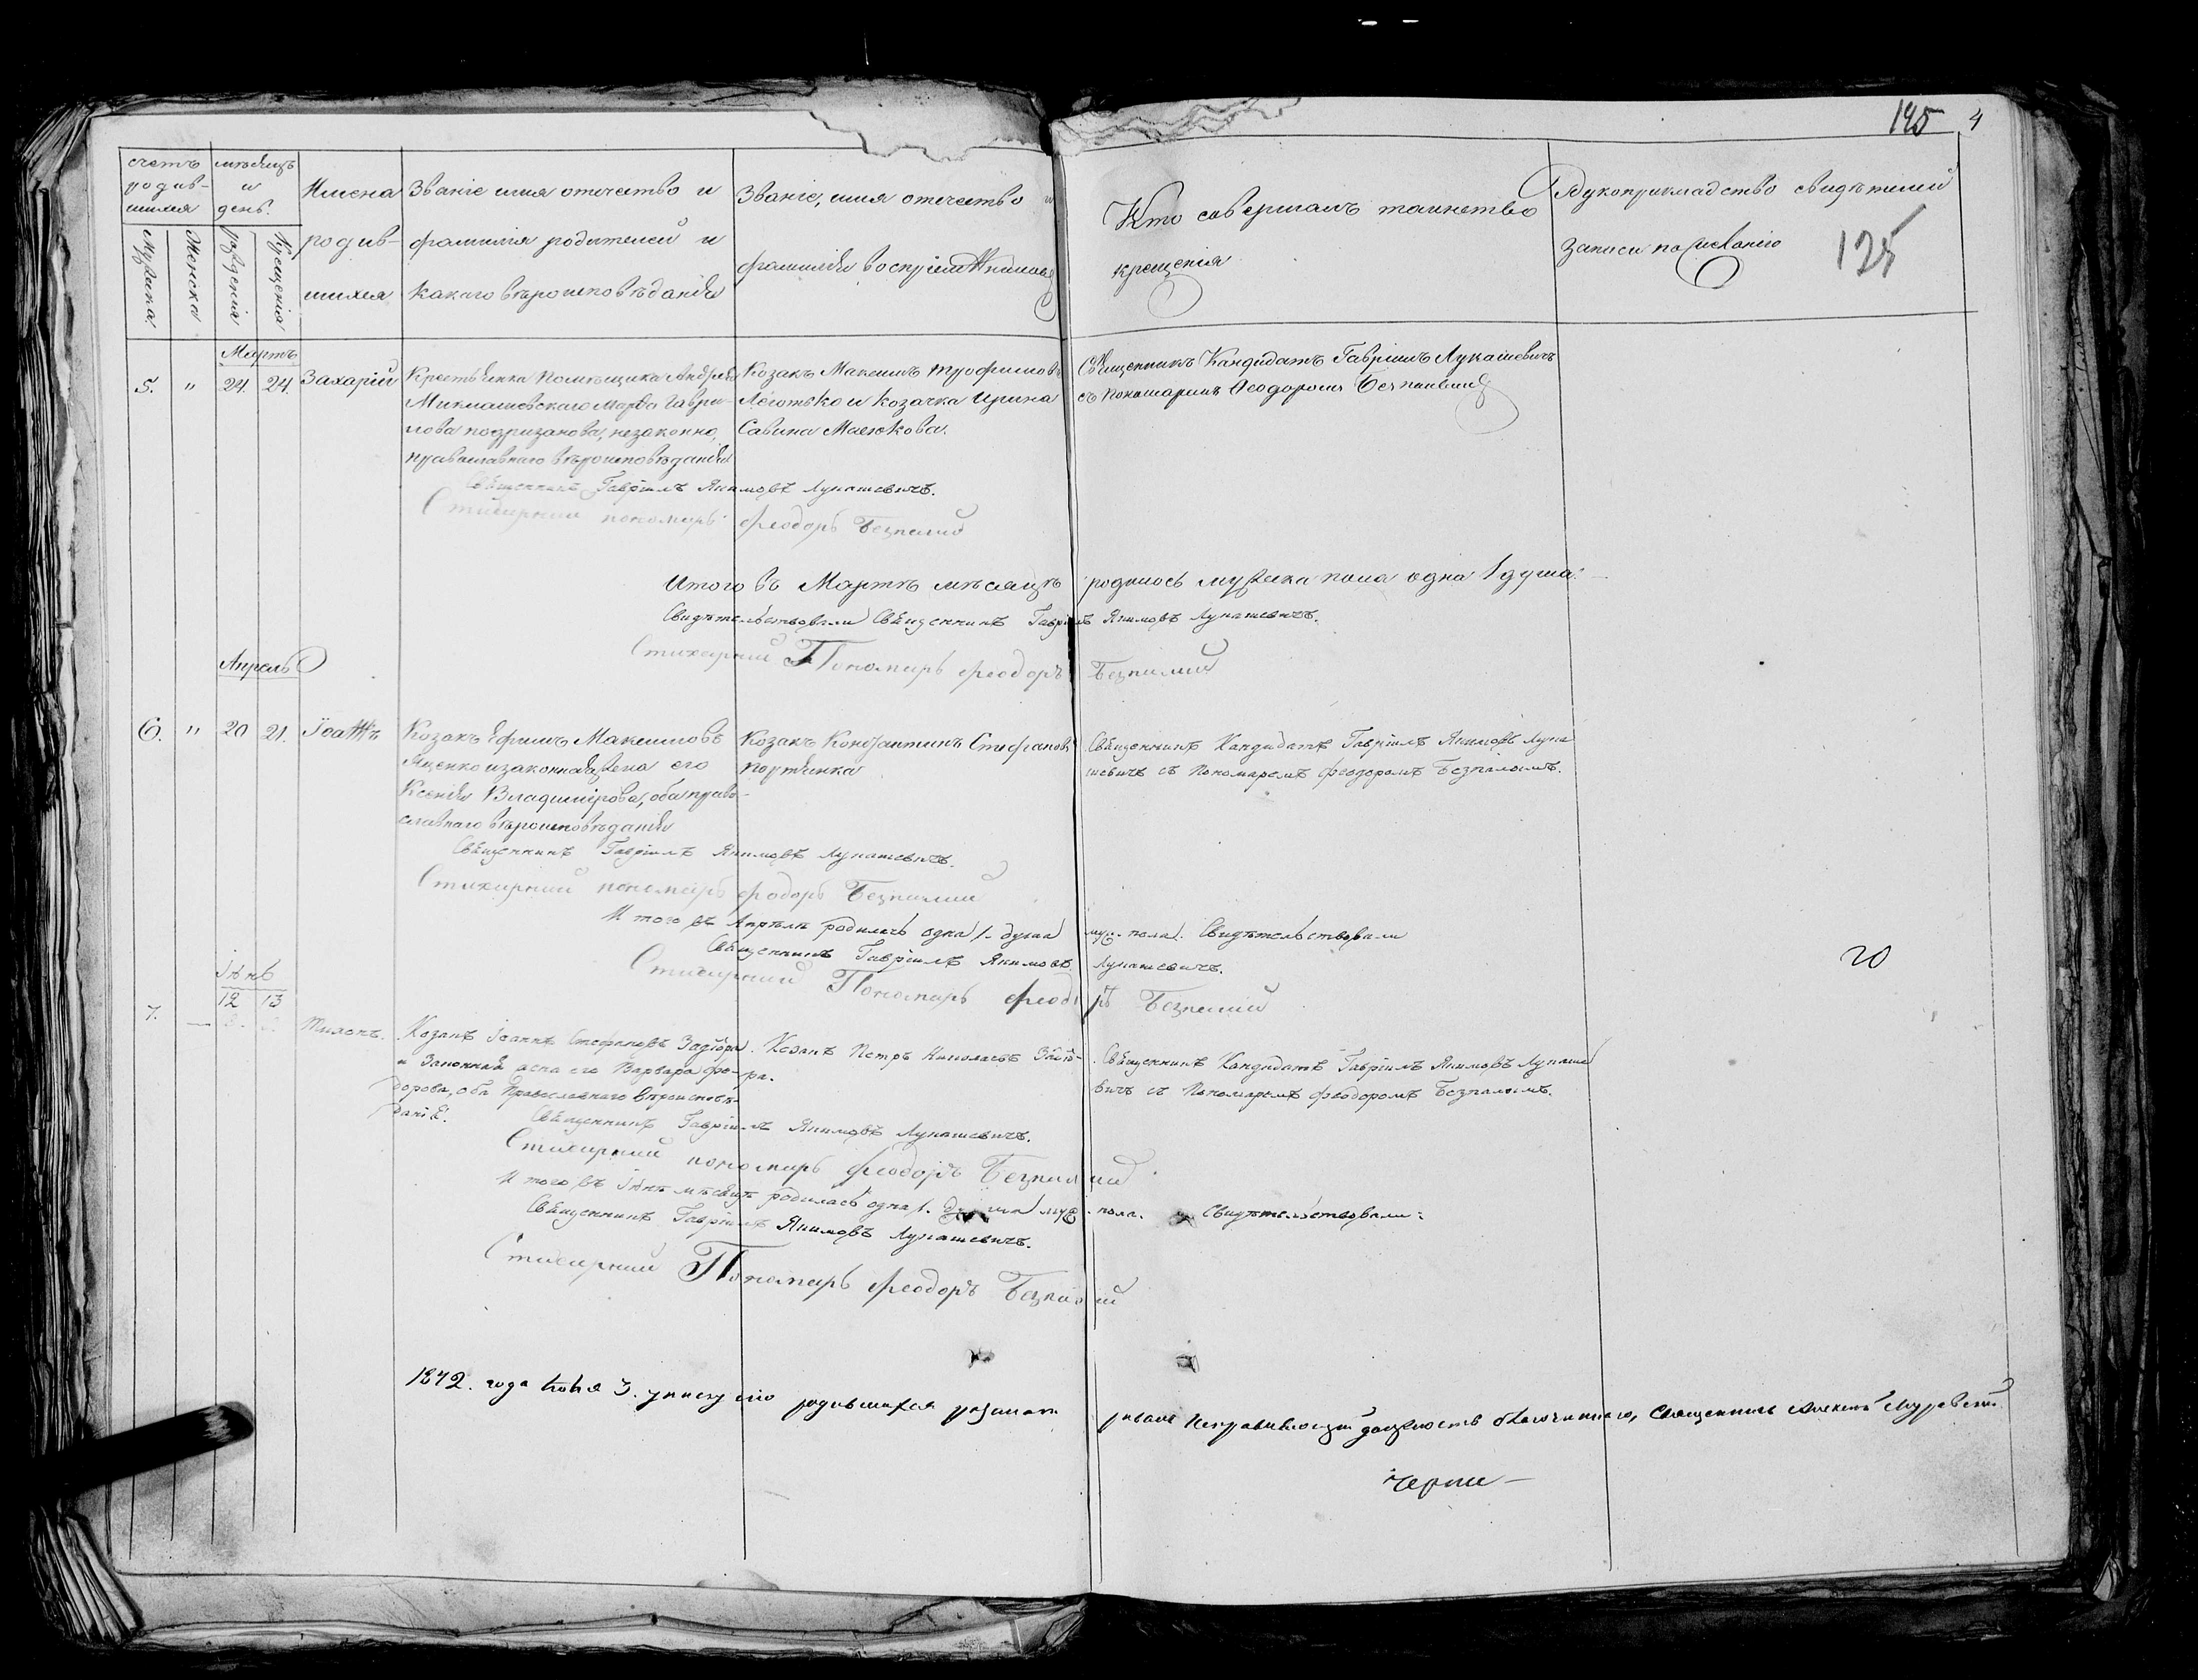 195 4
счетъ родив-
шихся
мѣсяцъ
и
день.
Мужска.
Женска
рожденія
Крещенія
Имена
родив-
шихся
Званіе имя отечество и
фамилія родителей и
какаго вѣроисповѣданія
Званіе, имя отечество и
фамилія воспріемниковъ
Кто совершалъ таинство
крещенія
Рукоприкладство свидѣтелей
записи по желанію
125
Мартъ
5. " 24. 24. Захарій
Крестьянка Помѣщика Андрея
Миклашевскаго Марфа Гаври-
лова подризанова, незаконно,
православнаго вѣроисповѣданія
Козакъ Максимъ Трофимовъ
Леготько и Козачка Ирина
Савина Маслюкова.
Священникъ Кандидатъ Гавріилъ Лукашевичъ
съ Пономаремъ Ѳеодоромъ
Священникъ Гавріилъ Якимовъ Лукашевичъ.
Стихарний пономарь Феодоръ Безпалий
Итого въ Мартѣ мѣсяцѣ родилось мужска пола одна 1 душа.
Свидѣтельствовали Священникъ Гавріилъ Якимовъ Лукашевичъ.
Стихарний Пономарь Феодоръ Безпалий
Апрель
6. " 20 21. Іоаннъ
Козакъ Ефимъ Максимовъ
Яценко и законная жена его
Ксенія Владимірова, оба право-
славнаго вѣроисповѣданія
Козакъ Константинъ Стефановъ
Портянка
Священникъ Кандидатъ Гавріилъ Якимовъ Лука
шевичъ съ Пономаремъ Феодоромъ Безпалымъ.
Священникъ Гавріилъ Якимовъ Лукашевичъ.
Стихарний пономарь Феодоръ Безпалий
И того въ Апрѣлѣ родилась одна 1. душа муж. пола. Свидѣтельствовали
Священникъ Гавріилъ Якимовъ Лукашевичъ.
Стихарний Пономарь Феодоръ Безпалий
20
12 13
7. — Тихонъ.
Козакъ Іоаннъ Стефановъ
и Законная жена его Варвара Фео-
дорова, оба Православнаго вѣроисповѣ-
данія.
Козакъ Петръ Николаевъ
Священникъ Кандидатъ Гавріилъ Якимовъ Лукаше
вичъ съ Пономаремъ Феодоромъ Безпалымъ.
Священникъ Гавріилъ Якимовъ Лукашевичъ.
Стихарний пономарь Феодоръ Безпалий
И того въ мѣсяцѣ родилась одна 1. душа муж. пола. Свидѣтельствовали:
Священникъ Гавріилъ Якимовъ Лукашевичъ.
Стихарний Пономарь Феодоръ Безпалий
1842. года 3. родившихся Исправляющій должность благочиннаго, Священникъ Алексѣй